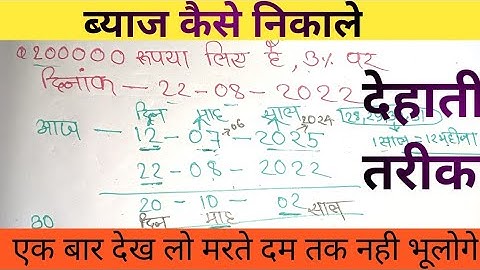 ब्याज कैसे निकाले
Q 200000 रूपया लिए है , 3% पर
दिनांक - 22-08-2022
देहाती
तरीक
दिन माह साल
06 2024
आज - 12-07-2025
1 साल = 12 महीना
22-08-2022
20-10-02
दिन माह साल
30
एक बार देख लो मरते दम तक नही भूलोगे